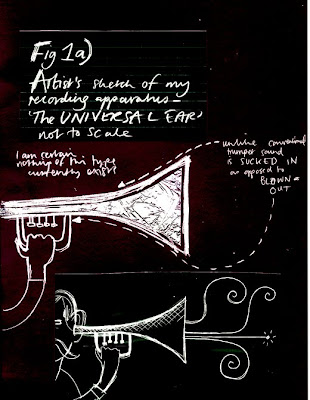 Fig 1a)
Artist's sketch of my
recording apparatus –
'The UNIVERSAL EAR'
not to scale
I am certain
nothing of this type
currently exists
unlike conventional
trumpet sound
is SUCKED IN
as opposed to
BLOWN
OUT